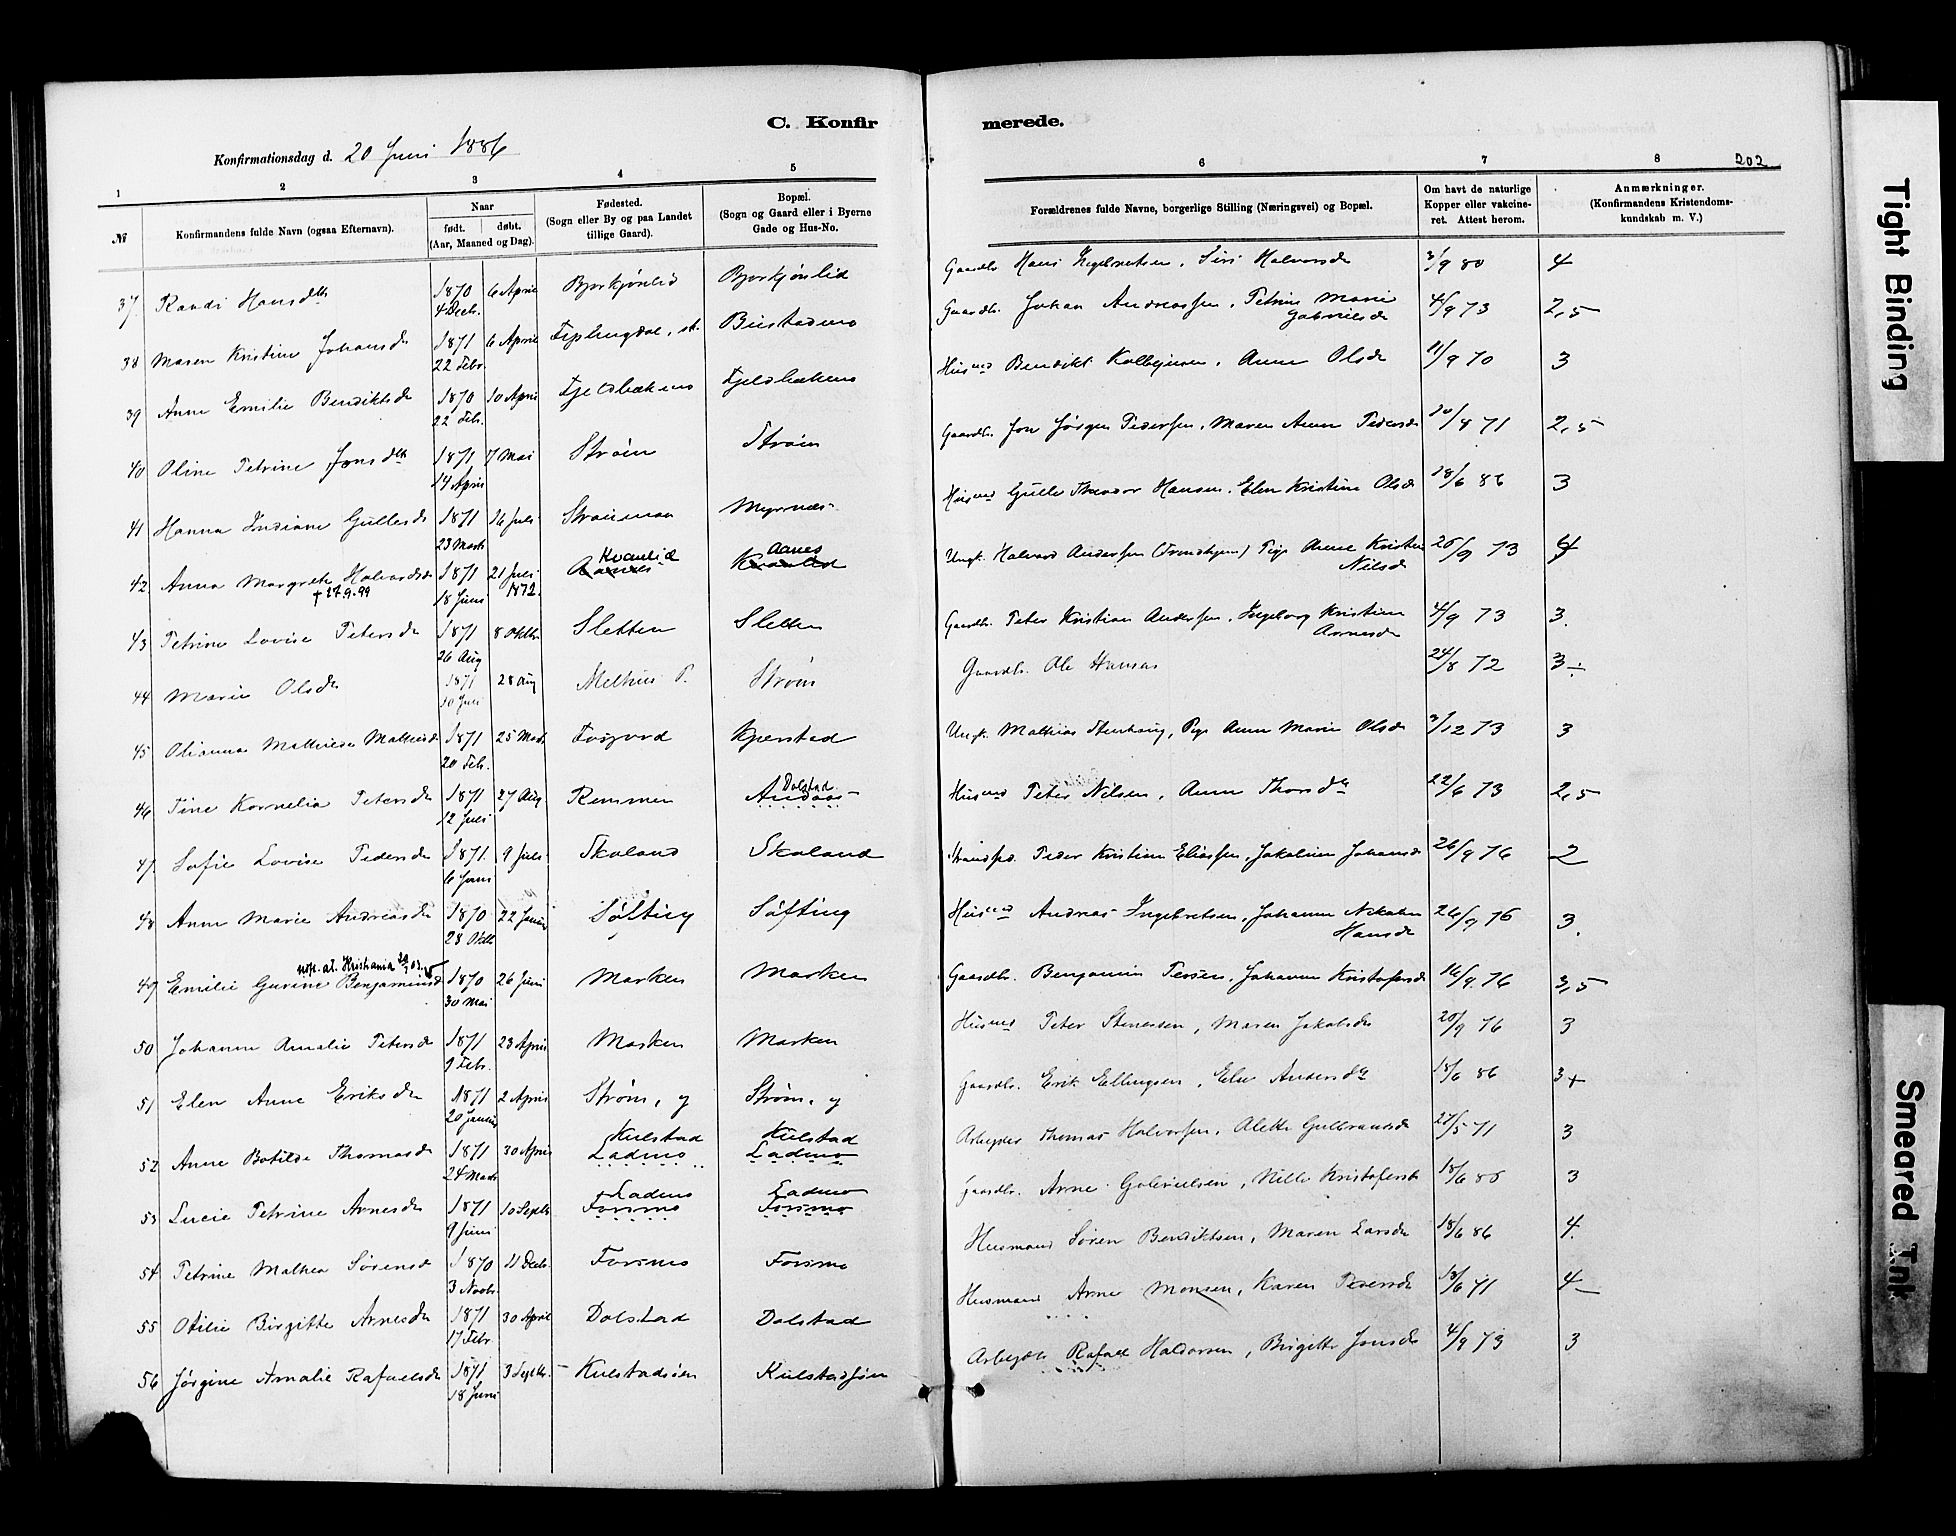 C. Konfirmerede.
Konfirmationsdag d. 20 Juni 1886
202
1 2 3 4 5 6 7 8
№
Konfirmandens fulde Navn (ogsaa Efternavn).
Naar
født. døbt.
(Aar, Maaned og Dag).
Fødested.
(Sogn eller By og paa Landet
tillige Gaard).
Bopæl.
(Sogn og Gaard eller i Byerne
Gade og Hus-No.
Forældrenes fulde Navne, borgerlige Stilling (Næringsvei) og Bopæl.
Om havt de naturlige
Kopper eller vakcine-
ret. Attest herom.
Anmærkninger.
(Konfirmandens Kristendoms-
kundskab m. V.)
37 Randi Hansdtr 1870 4 Decb. 6 April Bjørkjønlid Bjørkjønlid Gaardbr. Hans Ingebretsen, Siri Halvorsd 3/9 80 4
38 Maren Kristine Johansd 1871 22 Febr. 6 April Biistadmo Gaardbr. Johan Andreassen, Petrine Marie Gabrielsd 4/9 73 2,5
39 Anne Emilie Bendiktsd 1870 22 Feb. 10 April Fjeldbækmo Fjeldbækmo Husmd Bendikt Kolbeinsen, Anne Olsd 11/9 70 3
40 Oline Petrine Jonsdtr 1871 14 April 7 Mai Strøm Strøm Gaardbr. Jon Jørgen Pedersen, Maren Anne Pedersd 20/8 71 2,5
41 Hanna Indiane Gullesd 1871 23 Marts 16 Juli Strømmoa Myrnæs Husmd Gulle Theodor Hansen, Elen Kristine Olsd 18/6 86 3
42 Anna Margrete Halvardsd † 27.9.99 1871 18 Juni 21 Juli 1872 Aanes Kvanlid Kvanlid Aanes Ungk. Halvard Andersen (Trondhjem) Pige Anne Kristine Nilsd 25/9 73 4
43 Petrine Lovise Petersd 1871 26 Aug 8 Oktbr Sletten Sletten Gaardbr. Peter Kristian Andersen, Ingeborg Kristine Arnesd 4/9 73 3.
44 Marie Olsd 1871 10 Juli 28 Aug Melhus P. Strøm Gaardbr. Ole Hansen 24/8 72 3÷
45 Olianna Mathisine Mathisd 1871 20 Feb. 25 Mars Kjerstad Ungk. Mathias Stenhaug, Pige Anne Marie Olsd 3/12 73 3
46 Tine Kornelia Petersd 1871 12 Juli 27 Aug Remmen Andaas Dolstad Husmd Peter Nilsen, Anne Thorsdtr 22/6 73 2,5
47 Sofie Lovise Pedersd 1871 6 Juni 9 Juli Skaland Skaland Strandsd. Peder Kristian Eliassen, Jakobine Johansd 26/9 76 2
48 Anne Marie Andreasd 1870 28 Oktb 22 Januar Søfting Søfting Husmd Andreas Ingebretsen, Johanna Nikoline Hansd 26/9 76 3.
49 Emilie Gurine Benjaminsd 1870 30 Mai 26 Juni Marken Marken Gaardbr. Benjamin Persen, Johanne Kristofersd 16/9 76 3,5
50 Johanne Amalie Petersd 1871 9 Febr. 23 April Marken Marken Husmd Peter Stenersen, Maren Jakobsd 20/9 76 3
51 Elen Anne Eriksd 1871 20 Januar 2 April Strøm, y Strøm, y Gaardbr. Erik Ellingsen, Elen Andersdtr 18/6 86 3+
52 Anne Botilde Thomasd 1871 24 Marts 30 April Kulstad Ladmo Kulstad Ladmo Arbeyder Thomas Halvorsen, Alette Gulbransd 27/5 71 3
53 Lucie Petrine Arnesd 1871 9 Juni 10 Septb Ladmo Forsmo Ladmo Forsmo Gaardbr. Arne Gabrielsen, Nille Kristofersd 18/6 86 3
54 Petrine Mathea Sørensd 1870 3 Novbr. 11 Decb. Forsmo Forsmo Husmand Søren Bendiktsen, Maren Larsd 18/6 86 4.
55 Otilie Birgitte Arnesd 1871 17 Febr. 30 April Dolstad Dolstad Husmand Arne Monsen, Karen Pedersd 13/6 71 4–
56 Jørgine Amalie Rafaelsd 1871 18 Juni 3 Septb. Kulstadsjøen Kulstadsjøen Arbeyder Rafael Haldorsen, Birgitte Jonsd 4/9 73 3
Tight Binding
Smeared Ink